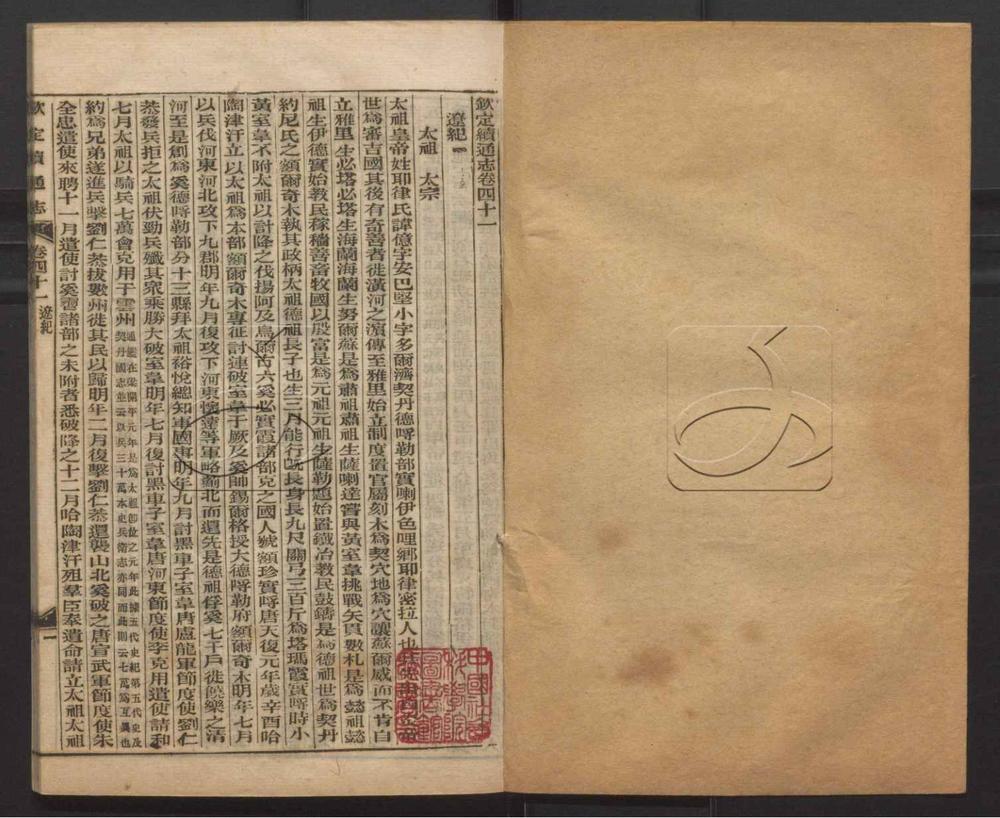 欽定續通志卷四十一
遼紀一
太祖 太宗
太祖皇帝姓耶律氏諱億字安巴堅小字多爾濟契丹德呼勒部實喇伊色哩鄉耶律密拉人也
世爲審吉國其後有奇善者徙潢河之濵傳至雅里始立制度置官屬刻木爲契穴地爲穴讓蘇爾威而不肯自
立雅里生必塔必塔生海蘭海蘭生努爾蘇是爲肅祖肅祖生薩喇達嘗與黃室韋挑戰矢貫數札是爲懿祖懿
祖生伊德實始教民稼穡善畜牧國以殷富是爲元祖元祖生薩勒題始置鐵冶教民鼓鑄是爲德祖世爲契丹
約尼氏之額爾奇木執其政柄太祖德祖長子也生三月能行旣長身長九尺關弓三百斤爲塔瑪霞實時小
黃室韋不附太祖以計降之伐揚阿及烏爾古六奚必實霞諸部克之國人號額珍實時唐天復元年歲辛酉哈
陶津汗立以太祖爲本部額爾奇木專征討連破室韋于厥及奚帥錫爾格授大德呼勒府額爾奇木明年七月
以兵伐河東河北攻下九郡明年九月復攻下河東懷遠等軍略薊北而還先是德祖俘奚七千戶徙饒樂之清
河至是創爲奚德呼勒部分十三縣拜太祖裕悅總知軍國事明年九月討黑車子室韋唐盧龍軍節度使劉仁
恭發兵拒之太祖伏勁兵殲其眾乘勝大破室韋明年七月復討黑車子室韋唐河東節度使李克用遣使請和
七月太祖以騎兵七萬會克用于雲州通鑑在梁開平元年是爲太祖卽位之元年此據五代史紀第五代史及契丹國志並云以兵三十萬本史兵衛志亦同而此則云七萬爲互異也
約爲兄弟遂進兵擊劉仁恭拔數州徙其民以歸明年二月復擊劉仁恭還襲山北奚破之唐宣武軍節度使朱
全忠遣使來聘十一月遣使討奚霫諸部之未附者悉破降之十二月哈陶津汗殂羣臣奉遺命請立太祖太祖
欽定續通志 卷四十一 遼紀 一